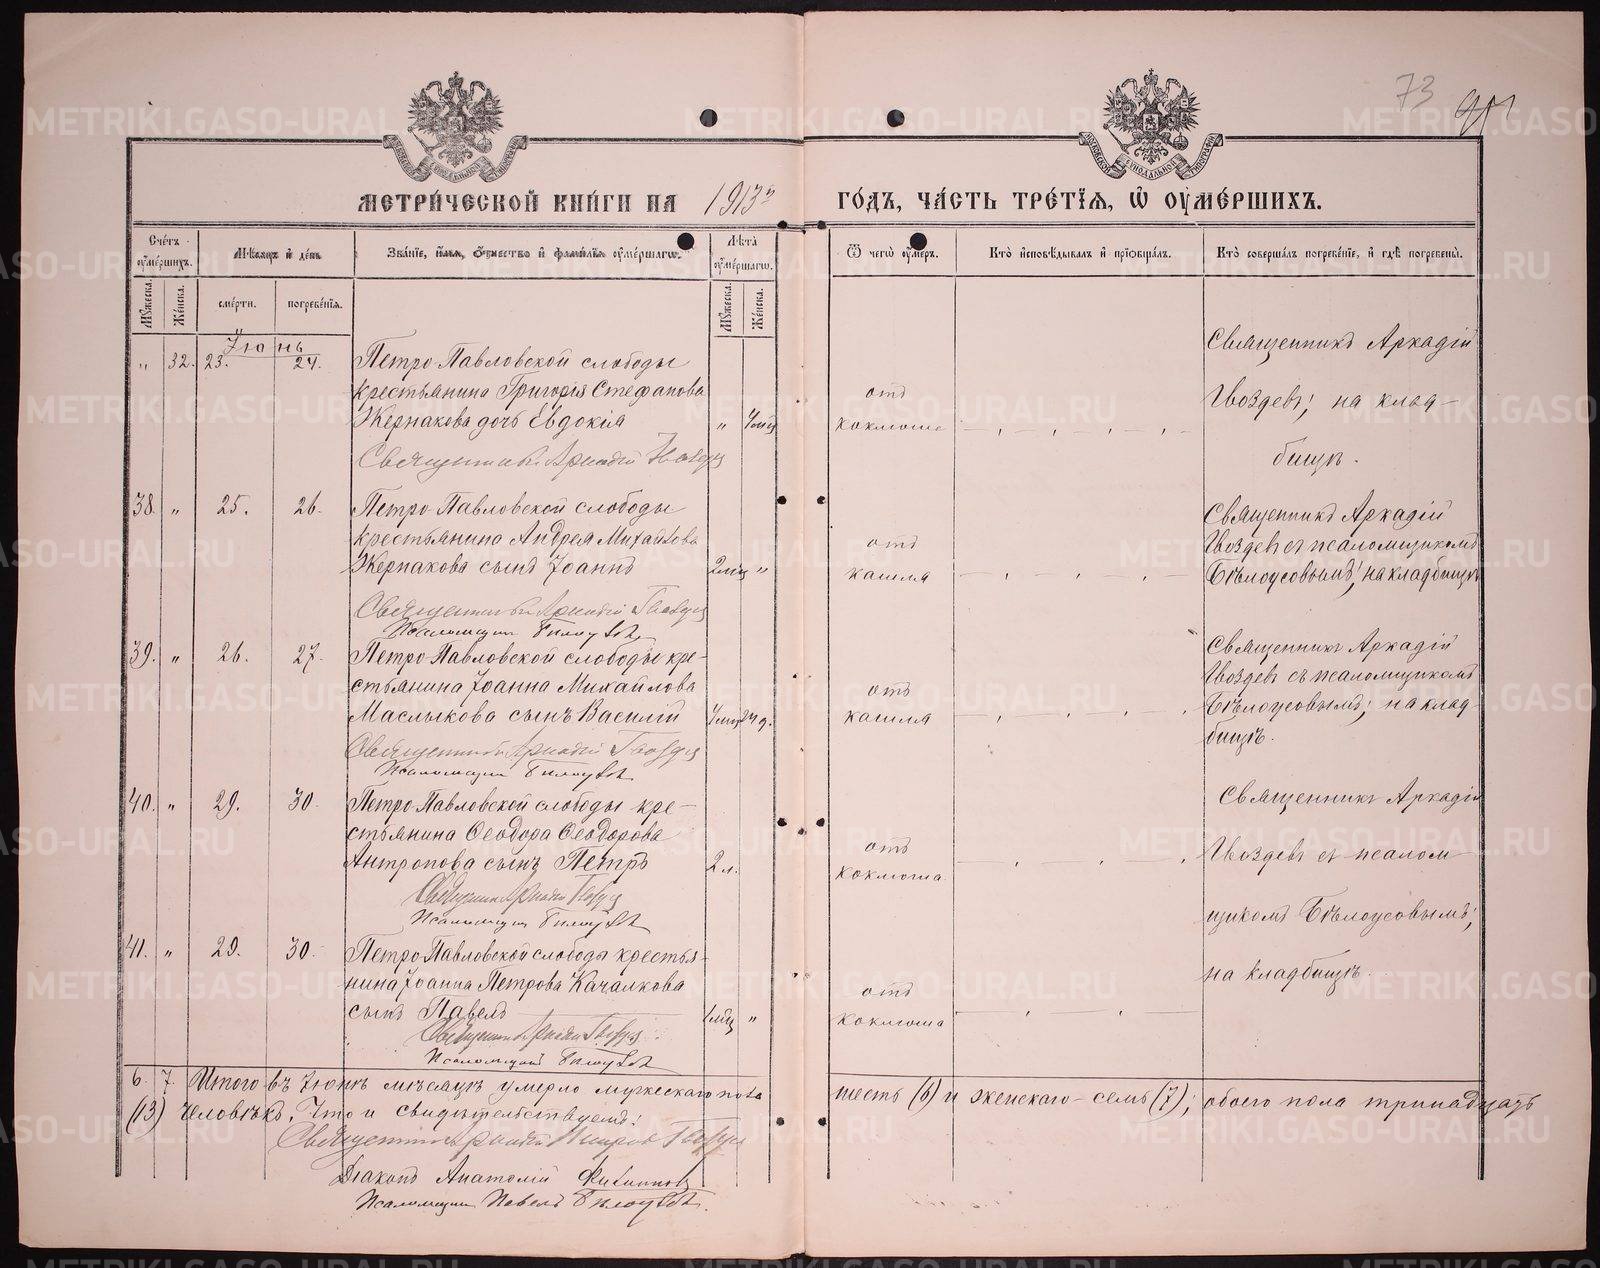 73
МЕТРИ́ЧЕСКОЙ КНИ́ГИ НА 1913й ГО́ДЪ, ЧА́СТЬ ТРЕ́ТЇѦ, Ѡ ОУМЕ́РШИХЪ.
Сче́тъ оумершихъ.
Мѣсѧцъ и день
Зва́нїе, и́мѧ, о́тчество и фами́лїѧ оумершагѡ.
Лѣта оумершагѡ.
Ѿ чегѡ оумеръ.
Кто исповѣдывалъ и прїобщалъ.
Кто совершалъ погребенїе, и гдѣ погребены.
Мужеска.
Женска.
смерти.
погребенїѧ.
Мужеска.
Женска.
Іюнь
" 32. 23. 24.
Петро-Павловской слободы
крестьянина Григорія Стефанова
Жернакова дочь Евдокія " 4 мц
Священникъ Аркадій Гвоздевъ
отъ
коклюша
Священникъ Аркадій
Гвоздевъ; на клад-
бищѣ.
38. " 25. 26.
Петро-Павловской слободы
крестьянина Андрея Михайлова
Жернакова сынъ Іоаннъ 2 мц "
Священникъ Аркадій Гвоздевъ
Псаломщикъ Бѣлоусовъ
отъ
кашля
Священникъ Аркадій
Гвоздевъ съ псаломщикомъ
Бѣлоусовымъ; на кладбищѣ
39. " 26. 27.
Петро-Павловской слободы кре-
стьянина Іоанна Михайлова
Маслыкова сынъ Василій
Священникъ Аркадій Гвоздевъ
Псаломщикъ Бѣлоусовъ
отъ
кашля
Священникъ Аркадій
Гвоздевъ съ псаломщикомъ
Бѣлоусовымъ; на клад-
бищѣ.
40. " 29. 30.
Петро-Павловской слободы кре-
стьянина Ѳеодора Ѳеодорова
Антропова сынъ Петръ 2 л.
Священникъ Аркадій Гвоздевъ
Псаломщикъ Бѣлоусовъ
отъ
коклюша
Священникъ Аркадій
Гвоздевъ съ псалом-
щикомъ Бѣлоусовымъ;
на кладбищѣ.
41. " 29. 30.
Петро-Павловской слободы крестья-
нина Іоанна Петрова Качалкова
сынъ Павелъ 1 мц "
Священникъ Аркадій Гвоздевъ
Псаломщикъ Бѣлоусовъ
отъ
коклюша
6. 7. Итого въ Іюнѣ мѣсяцѣ умерло мужескаго пола шесть (6) и женскаго - семь (7); обоего пола тринадцать
(13) человѣкъ. Что и свидѣтельствуемъ:
Священникъ Аркадій Гвоздевъ
Діаконъ Анатолій Филиппов
Псаломщикъ Павелъ Бѣлоусовъ.
METRIKI.GASO-URAL.RU